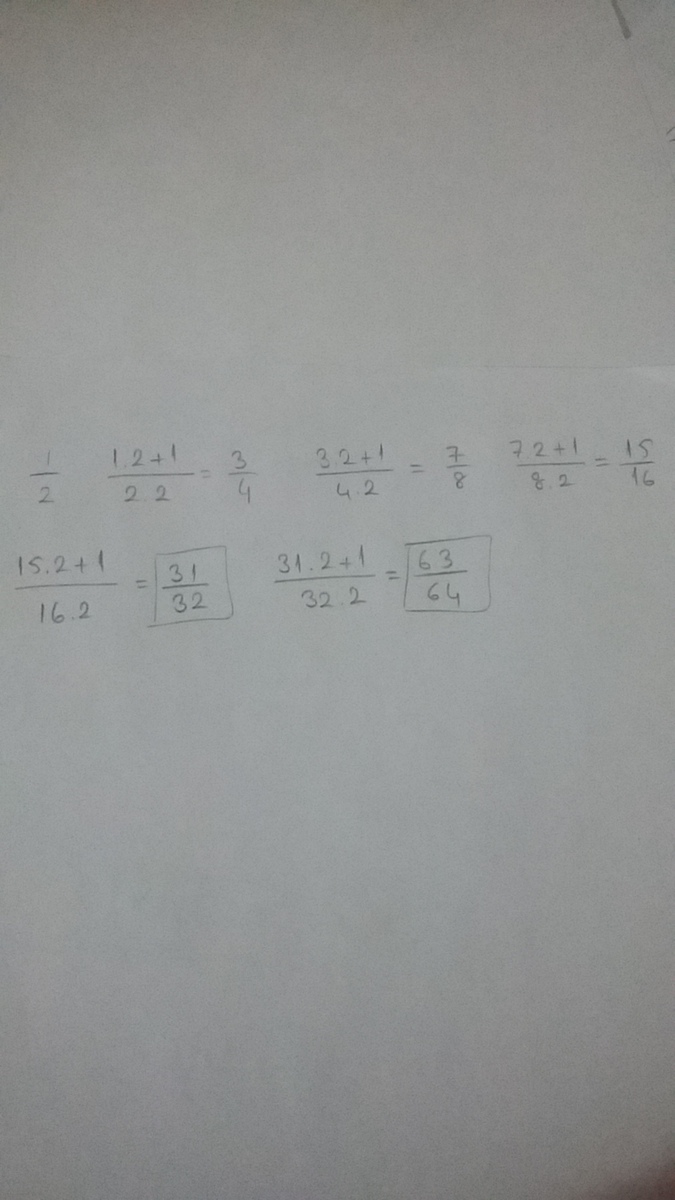 1/2 (1.2+1)/(2.2) = 3/4 (3.2+1)/(4.2) = 7/8 (7.2+1)/(8.2) = 15/16
(15.2+1)/(16.2) = 31/32 (31.2+1)/(32.2) = 63/64